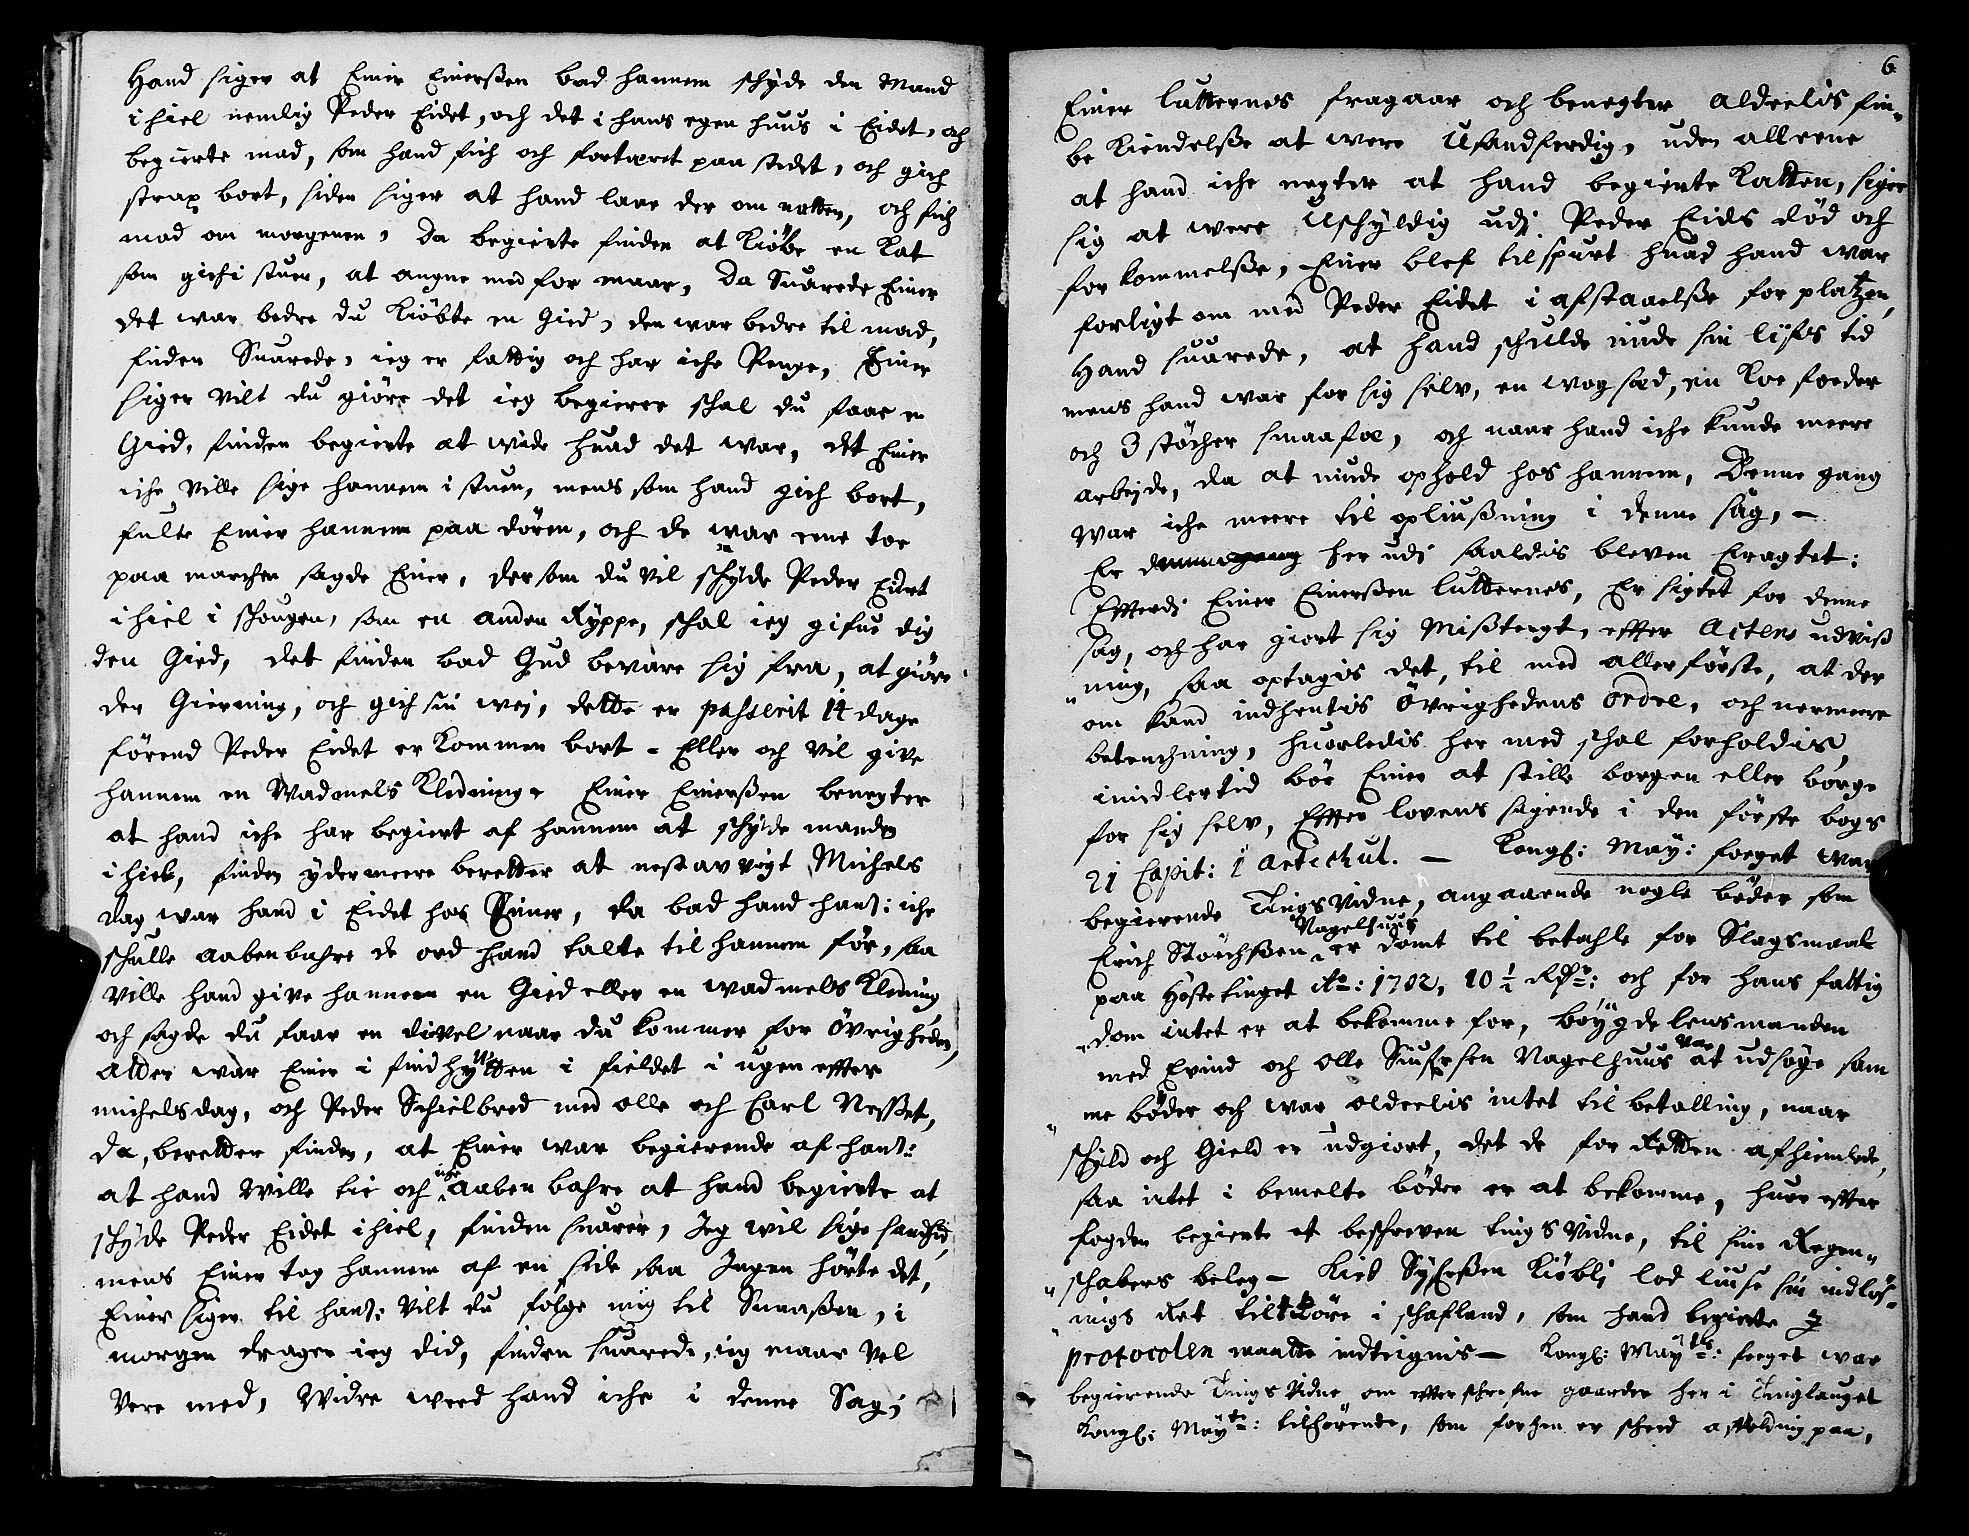 Hand siger at Einer Einerßen bad hannem schyde den Mand
ihiel nemlig Peder Eidet, och det i hans egen huus i Eidet, och
begierte mad, som hand fich och fortæret paa stedet, och gich
strax bort, siden siger at hand laae der om natten, och fich
mad om morgenen, Da begierte finden at kiøbe en Kat
som gich i stuen, at angne med for maar, Da Suarede Einer
det war bedre du kiøbte en Gied, den war bedre til mad,
finden Suarede, ieg er fattig och har iche Penge, Einer
siger vilt du giøre det ieg begierer schal du faae en
Gied, finden begierte at wide huad det war, det Einer
iche ville sige hannem i stuen, mens som hand gich bort,
fulte Einer hannem paa døren, och de war ene toe
paa marchen sagde Einer, dersom du vil schyde Peder Eidet
ihiel i schougen, som en anden Ryppe, schal ieg gifue dig
den Gied, det finden bad Gud bevare sig fra, at giøre
den Gierning, och gich sin wej, dette er passerit 14 dage
førend Peder Eidet er kommen bort - Eller och vil give
hannem en Wadmels Kledning, Einer Einerßen benegter
at hand iche har begiert af hannem at schyde manden
ihiel, finden ydermeere beretter at nest av vigt Michels
dag war hand i Eidet hos Einer, da bad hand ham: iche
schulle aabenbahre de ord hand talte til hannem før, saa
ville hand give hannem en Gied eller en wadmels Kledning
och sagde du faar en divel naar du kommer for Øvrigheden,
atter war Einer i findhytten i fieldet i ugen effter
michelsdag, och Peder Schielbred med olle och Carl Neßet,
da, beretter finden, at Einer war begierende af ham:
at hand wille tie och iche aabenbahre at hand begierte at
schyde Peder Eidet ihiel, finden suarer, Jeg wil sige sandhed,
mens Einer tog hannem af en side saa Ingen hørte det,
Einer siger til ham: vilt du følge mig til Snaaßen, i
morgen drager ieg did, finden suarede, ieg maae vel
vere med, Widre weed hand iche i denne Sag;
6
Einer lutternes fragaar och benegter aldeelis fin-
bekiendelße at were Usandferdig, uden alleene
at hand iche negter at hand begierte Katten, siger
sig at were Uschyldig udj Peder Eids død och
forkommelße, Einer blef tilspurt huad hand war
forligt om med Peder Eidet i afstaaelße for platzen,
Hand suarede, at hand schulde niude sin lifs tid
mens hand war for sig selv, en wog sæd, en Koe foeder
och 3 støcher smaafæ, och naar hand iche kunde meere
arbejde, da at niude ophold hos hannem, Denne gang
war iche meere til opliusning i denne sag, -
Er denne gang her udj saaledis bleven Eragtet:
Efterdj Einer Einerßen lutternes, Er sigtet for denne
sag, och har giort sig Mißtengt, effter Actens udviß
ning, saa optagis det, til med allerførste, at der
om kand indhentis Øvrighedens ordre, och nermeere
betenchning, huorledis her med schal forholdis
imidlertid bør Einer at stille borgen eller børge
for sig selv, Effter lovens sigende i den første bogs
21 Capit: 1 Artichul. - Kongl: May: foeget war
begierende Tings vidne, angaaende nogle bøder som
Erich Størchßen Nagelhuus er dømt til betahle for Slagsmaal
paa Høstetinget Ao: 1702, 10 ½ Rdr: och for hans fattig
dom intet er at bekomme for, bøygdelensmanden
med Erind och Olle Siursen Nagelhuus var at udsøge sam
me bøder och war oldeelis intet til betalling, naar
schyld och Gield er udgiort, det de for Retten afhiemlede,
saa intet i bemelte bøder er at bekomme, huor effter
fogden begierte et beschreven tings vidne, til sine Regen-
schabers beleg - Kield Syferßen Kiøblj lod liuse sin indløs-
nings Ret til Køre i schafland, som hand begierte I
protocolen maatte indteignis - Kongl: Mayts: foeget war
begierende Tings vidne om effterschrefne gaarder her i Tinglauget
Kongl: Mayts: tilhørende, som forhen er scheed afstelding paa,